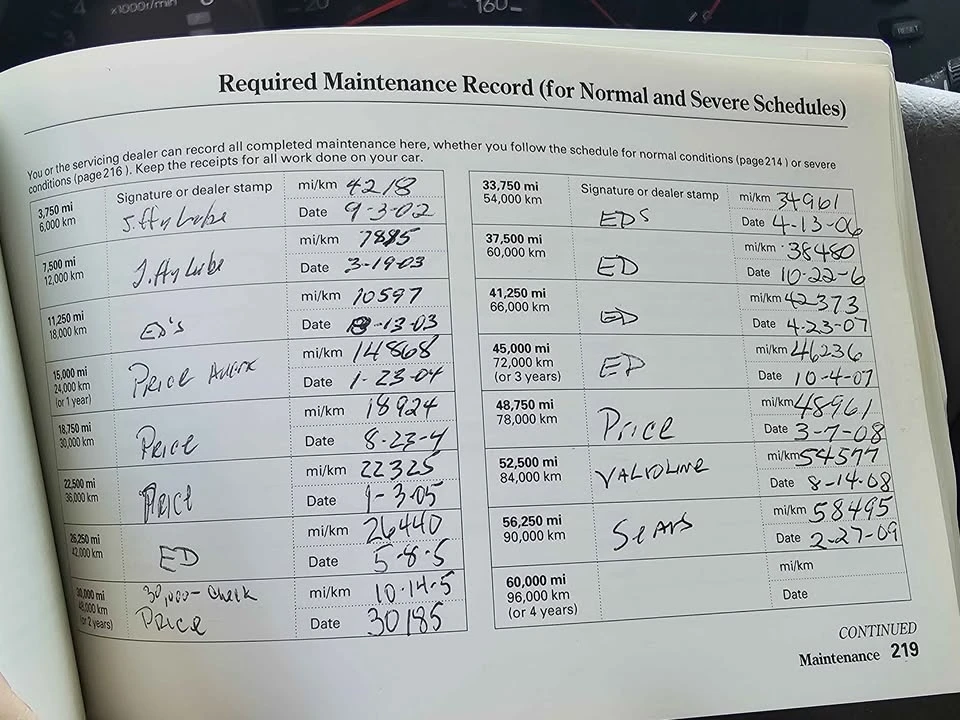 x1000r/min
20
160
RESET
Required Maintenance Record (for Normal and Severe Schedules)
You or the servicing dealer can record all completed maintenance here, whether you follow the schedule for normal conditions (page 214 ) or severe
conditions (page 216 ). Keep the receipts for all work done on your car.
3,750 mi
6,000 km
Signature or dealer stamp
Jiffy Lube
mi/km 4218
Date 9-3-02
7,500 mi
12,000 km
Jiffy Lube
mi/km 7885
Date 3-19-03
11,250 mi
18,000 km
ED'S
mi/km 10597
Date 8-13-03
15,000 mi
24,000 km
(or 1 year)
PRICE
mi/km 14868
Date 1-23-04
18,750 mi
30,000 km
PRICE
mi/km 18924
Date 8-23-4
22,500 mi
36,000 km
PRICE
mi/km 22325
Date 1-3-05
26,250 mi
42,000 km
ED
mi/km 26440
Date 5-8-5
30,000 mi
48,000 km
(or 2 years)
30,000- Check
PRICE
mi/km 10-14-5
Date 30185
33,750 mi
54,000 km
Signature or dealer stamp
EDS
mi/km 34961
Date 4-13-06
37,500 mi
60,000 km
ED
mi/km 38480
Date 10-22-6
41,250 mi
66,000 km
ED
mi/km 42373
Date 4-23-07
45,000 mi
72,000 km
(or 3 years)
ED
mi/km 46236
Date 10-4-07
48,750 mi
78,000 km
Price
mi/km 48961
Date 3-7-08
52,500 mi
84,000 km
VALVOLINE
mi/km 54577
Date 8-14-08
56,250 mi
90,000 km
SeARS
mi/km 58495
Date 2-27-09
60,000 mi
96,000 km
(or 4 years)
mi/km
Date
CONTINUED
Maintenance 219